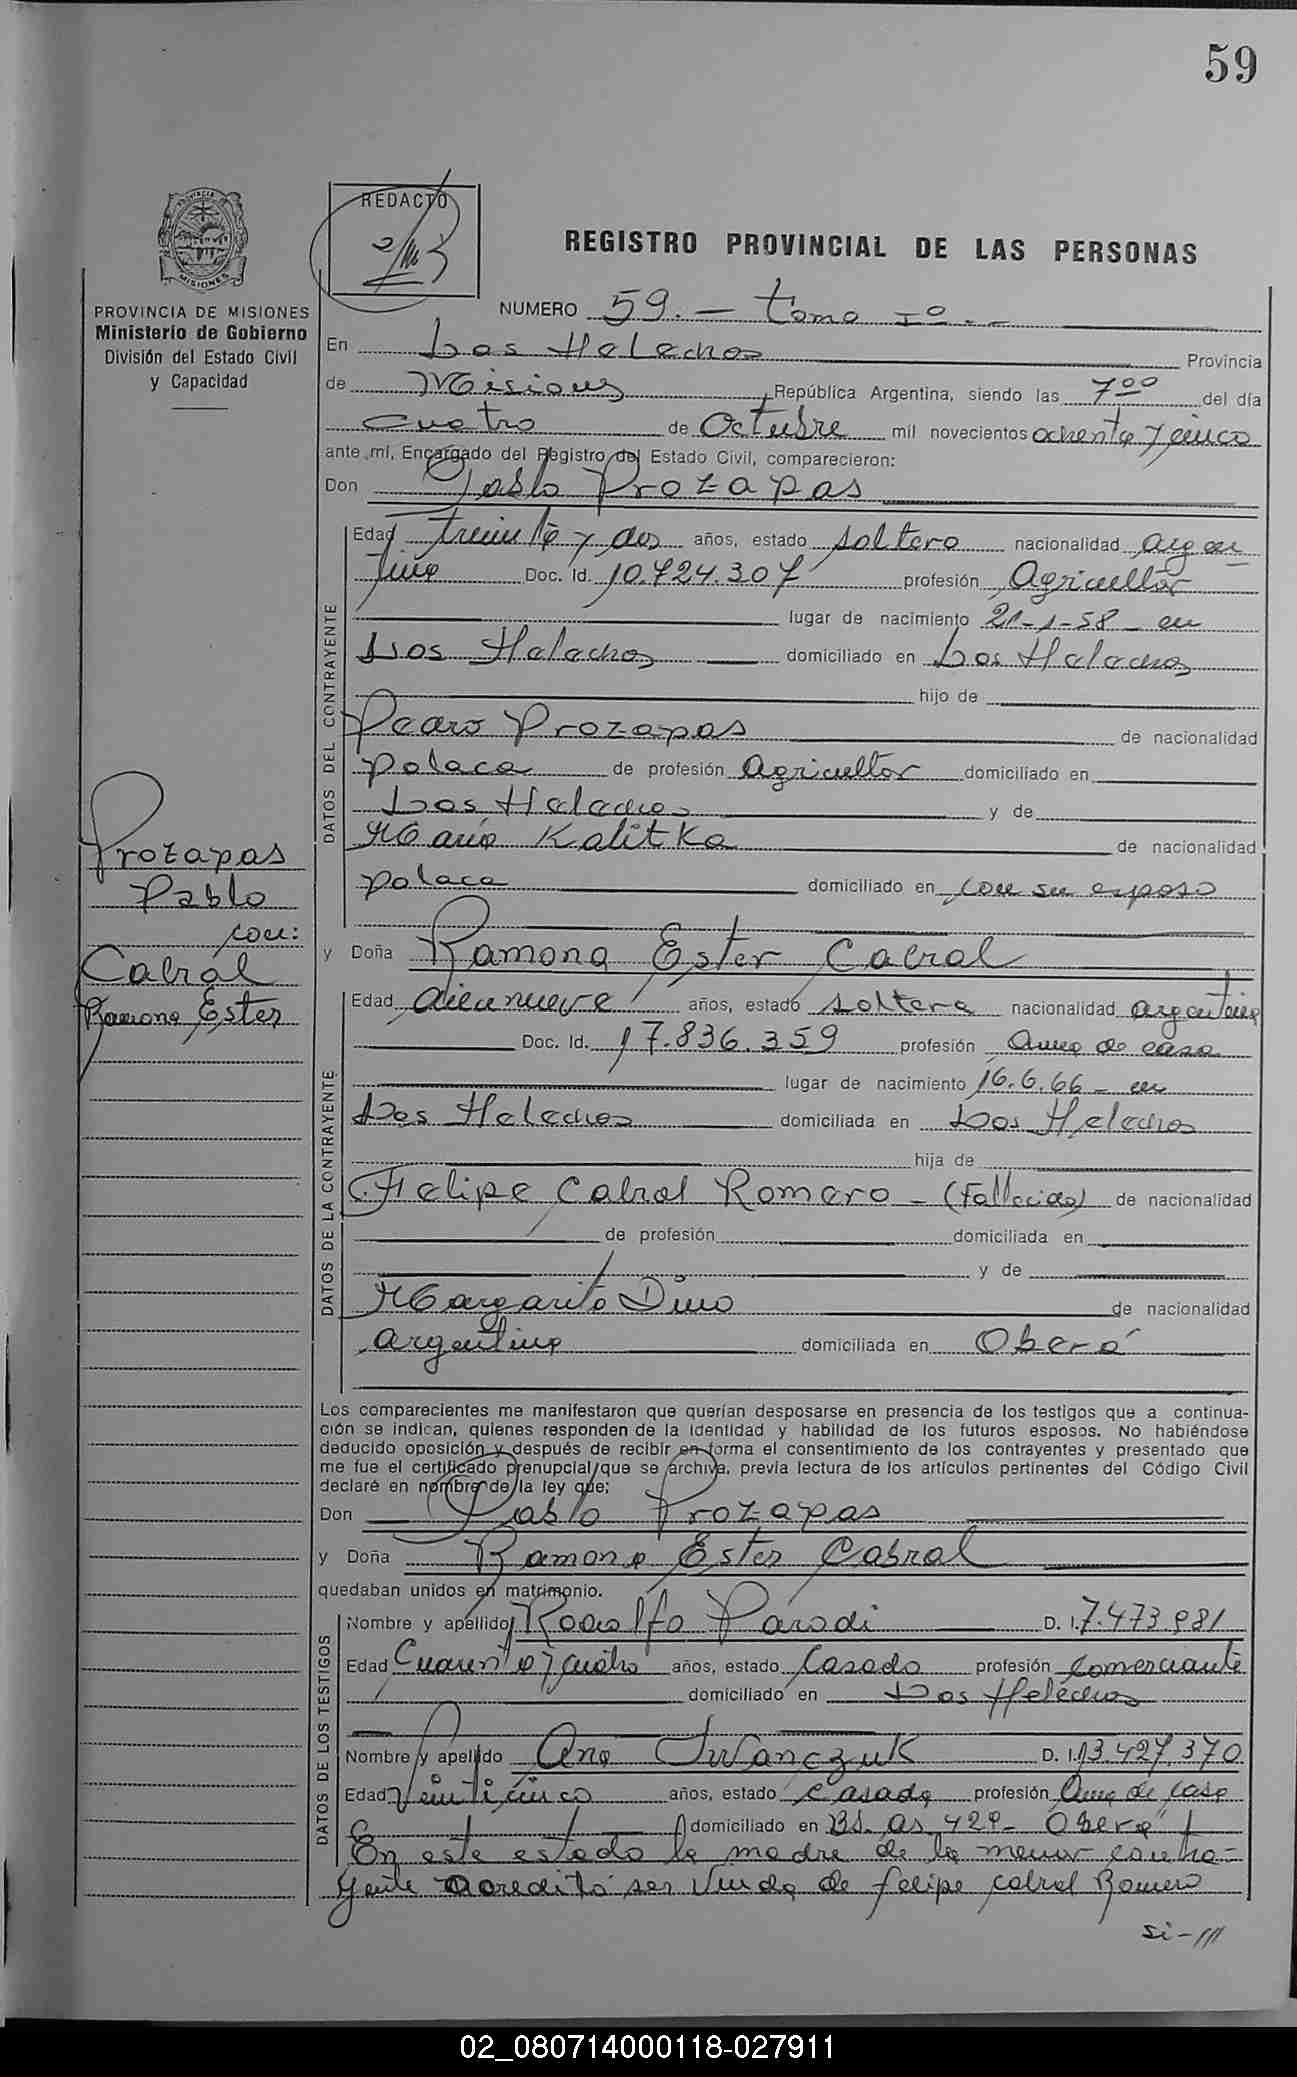 59
PROVINCIA
MISIONES
REDACTO
REGISTRO PROVINCIAL DE LAS PERSONAS
PROVINCIA DE MISIONES
Ministerio de Gobierno
División del Estado Civil
y Capacidad
NUMERO 59.- tomo Iº.-
En Los Helechos Provincia
de Misiones, República Argentina, siendo las 7 00 del día
cuatro de Octubre mil novecientos ochenta y cinco
ante mí, Encargado del Registro del Estado Civil, comparecieron:
Don Pablo Prozapas
DATOS DEL CONTRAYENTE
Edad treinta y dos años, estado soltero nacionalidad argen
tina Doc. Id. 10.424.307 profesión Agricultor
lugar de nacimiento 21-1-58 - en
Los Helechos domiciliado en Los Helechos
hijo de
Pedro Prozapas de nacionalidad
polaca de profesión agricultor domiciliado en
Los Helechos y de
María Kalitka de nacionalidad
polaca domiciliado en con su esposo
Prozapas
Pablo
con:
Cabral
Ramona Ester
y Doña Ramona Ester Cabral
DATOS DE LA CONTRAYENTE
Edad diecinueve años, estado soltera nacionalidad argentina
Doc. Id. 17.836.359 profesión Ama de casa
lugar de nacimiento 16.6.66 - en
Los Helechos domiciliada en Los Helechos
hija de
Felipe Cabral Romero - (Fallecido) de nacionalidad
de profesión domiciliada en
y de
Margarita Dino de nacionalidad
argentina domiciliada en Oberá
Los comparecientes me manifestaron que querían desposarse en presencia de los testigos que a continua-
ción se indican, quienes responden de la identidad y habilidad de los futuros esposos. No habiéndose
deducido oposición y después de recibir en forma el consentimiento de los contrayentes y presentado que
me fue el certificado prenupcial que se archiva, previa lectura de los artículos pertinentes del Código Civil
declaré en nombre de la ley que:
Don Pablo Prozapas
y Doña Ramona Ester Cabral
quedaban unidos en matrimonio.
DATOS DE LOS TESTIGOS
Nombre y apellido Rodolfo Parodi D. I. 7.473.981
Edad Cuarenta y cuatro años, estado Casado profesión Comerciante
domiciliado en Los Helechos
Nombre y apellido Ana Iwanczuk D. I. 13.427.370
Edad Veinticinco años, estado Casada profesión Ama de casa
domiciliado en Bs. As 429 - Oberá
En este estado la madre de la menor contra-
yente acreditó ser viuda de Felipe Cabral Romero
si-///
02_080714000118-027911